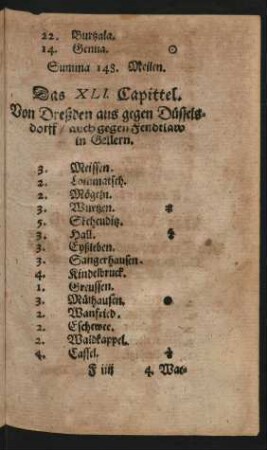 22. Burtzala.
14. Genua.
Summa 148. Meilen.
Das XLI. Capittel.
Von Dreßden aus gegen Düssels-
dorff / auch gegen Fendtlaw
in Gellern.
3. Meissen.
2. Lommatsch.
2. Mögeln.
3. Wurtzen.
5. Scheuditz.
3. Hall.
3. Eyßleben.
3. Sangerhausen.
4. Kindelbruck.
1. Greussen.
3. Mülhausen.
2. Wanfried.
2. Eschewee.
2. Waldkappel.
4. Cassel.
F iiij 4. War-